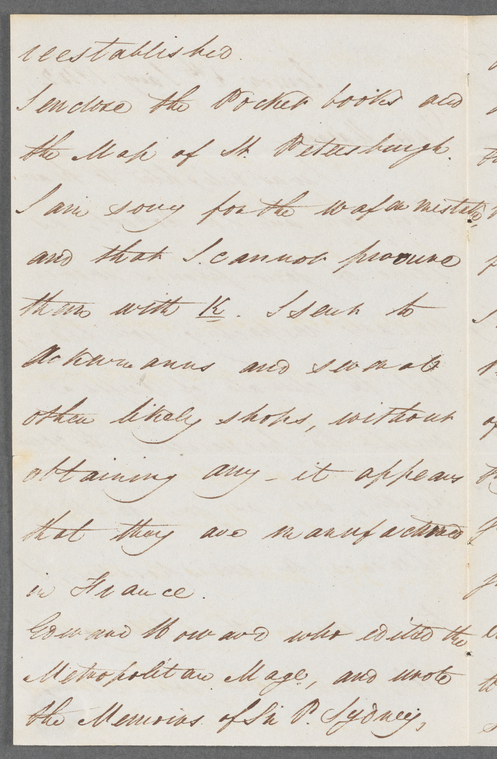 reestablished.
I enclose the Pocket books and
the Map of St. Petersburgh.
I am sorry for the wafer mistake,
and that I cannot procure
them with K. I sent to
Ackermanns and several
other likely shops, without
obtaining any - it appears
that they are manufactured
in France.
Edward Howard who edited the
Metropolitan Mage, and wrote
the Memoirs of Sir P. Sydney,